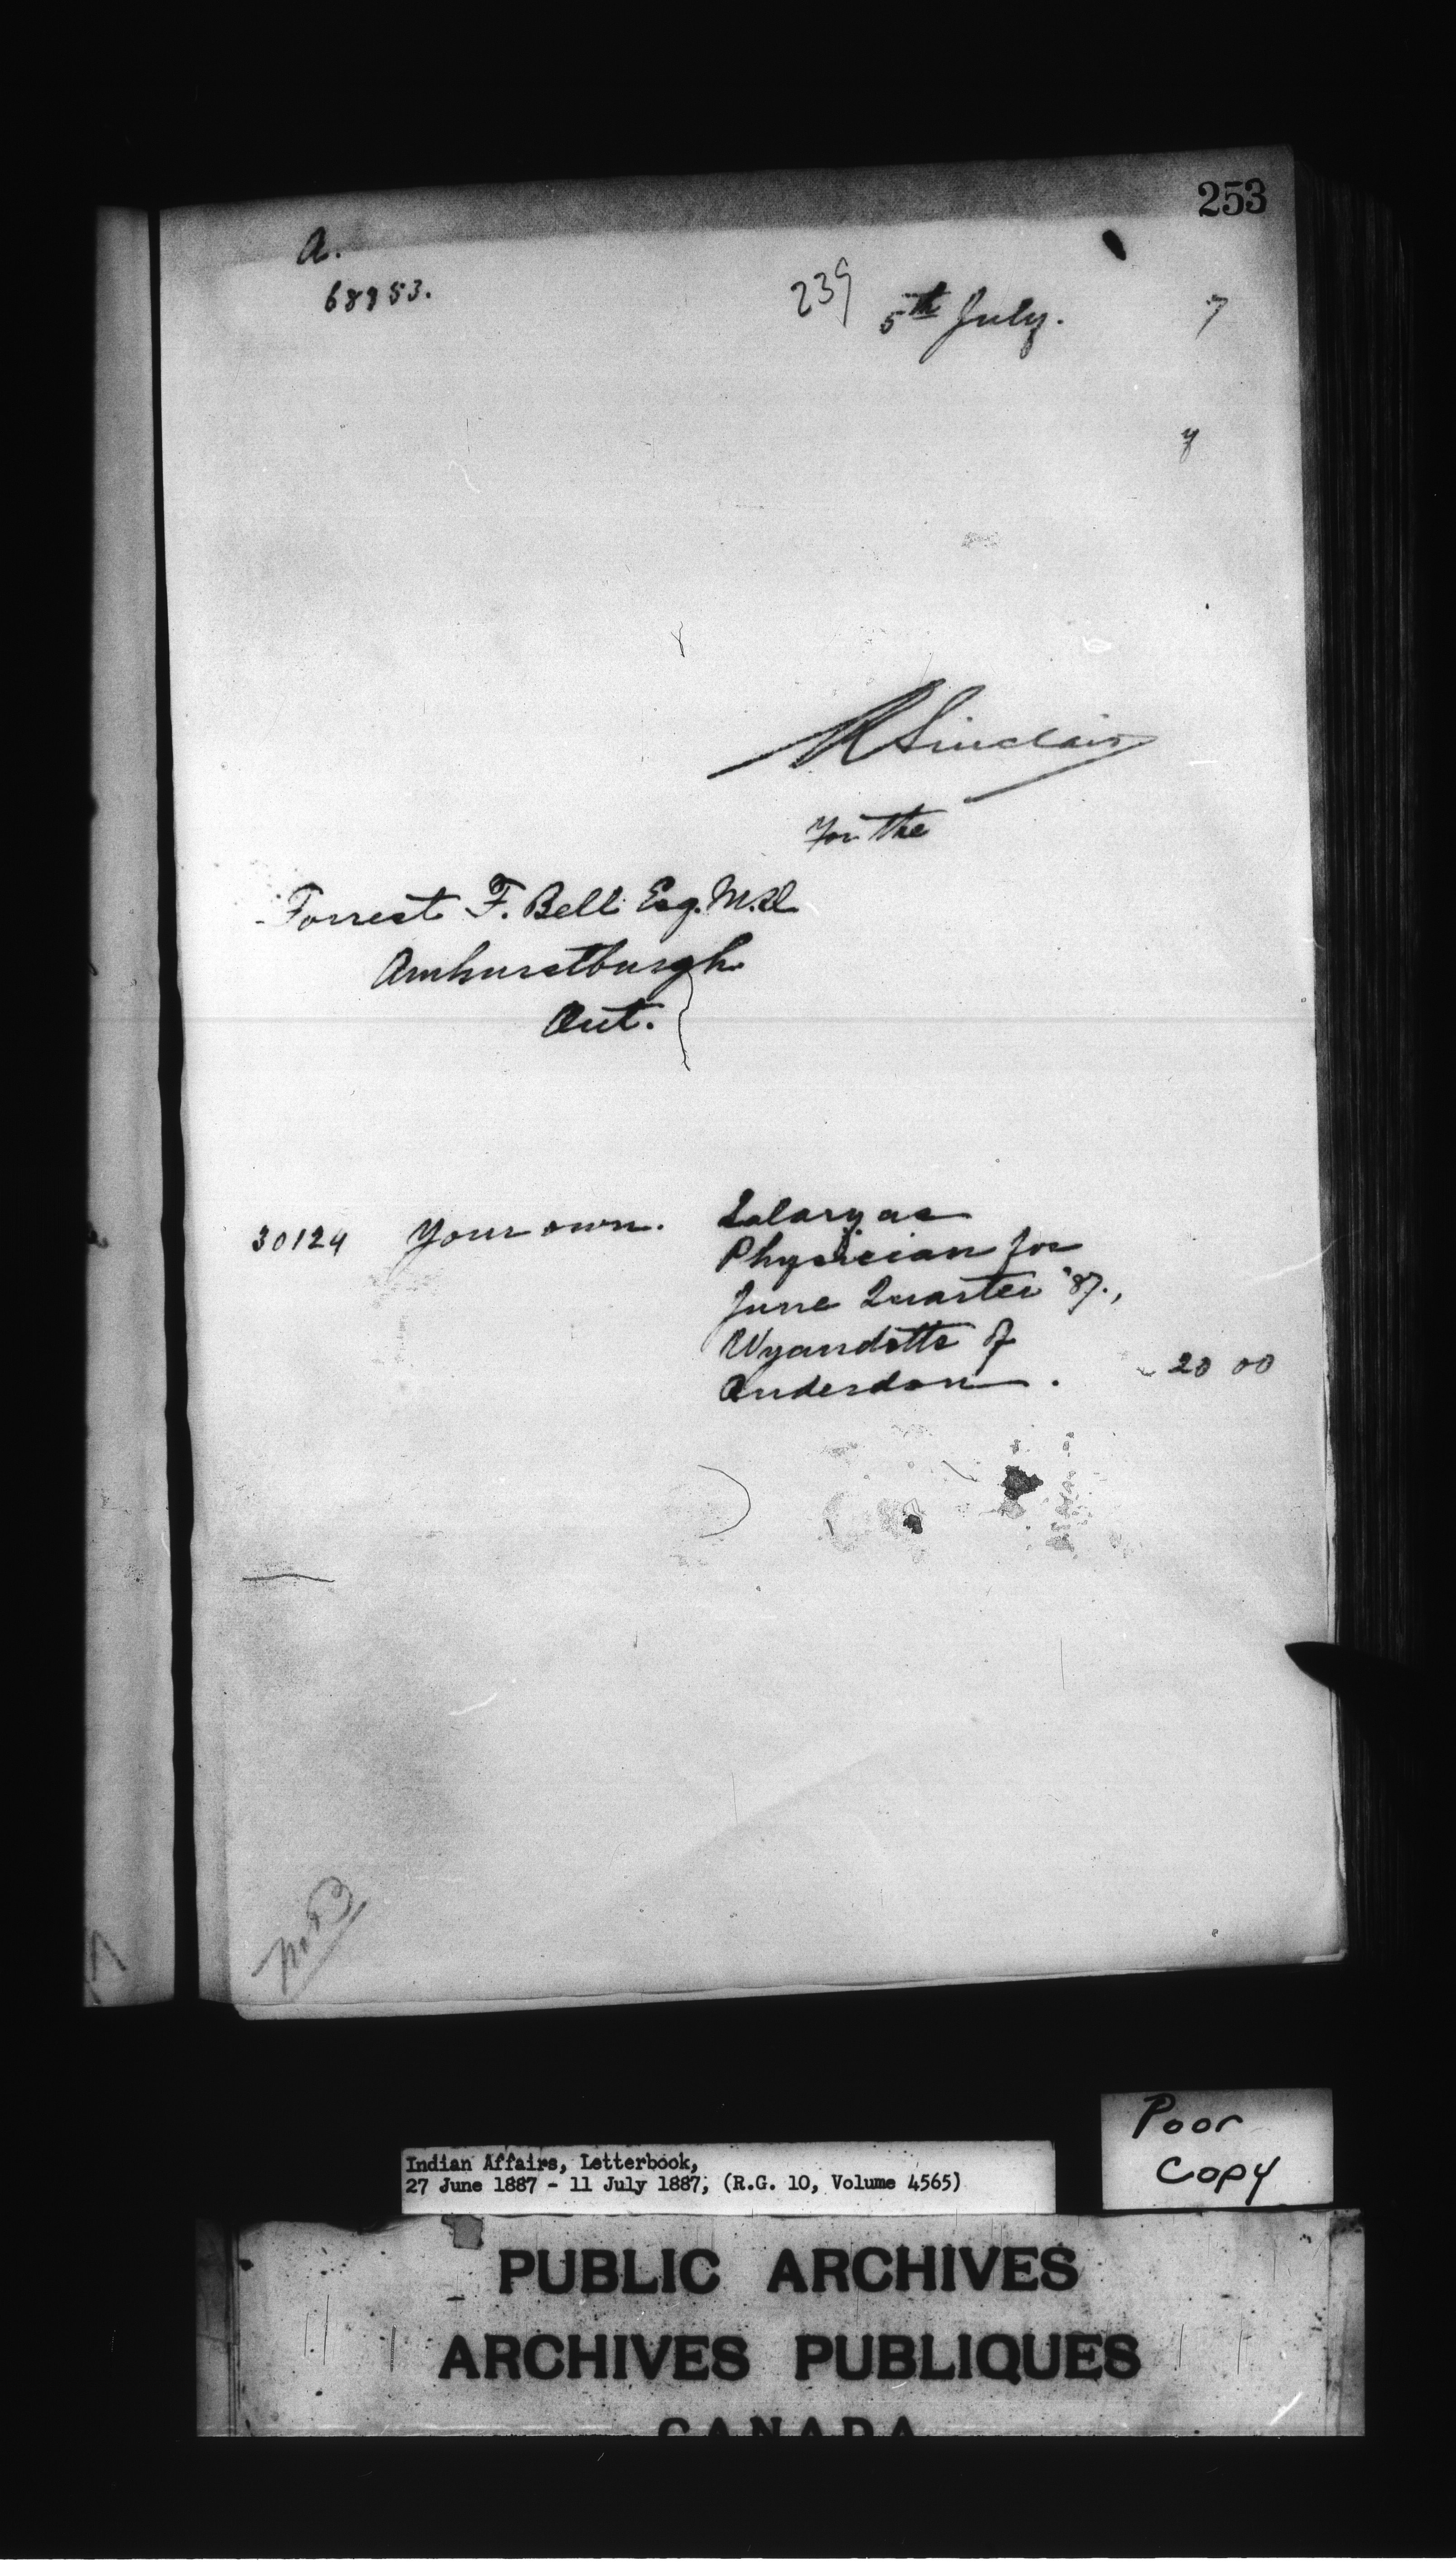 253
a.
68953.
239
5th July.
7
y
R Sinclair
For the
Forrest F. Bell Esq. M.D
Amhurstburgh
Ont.
30124 Your own. Salary as
Physician for
June Quarter '87.,
Wyandotte of
Anderdon. 20 00
Poor
Copy
Indian Affairs, Letterbook,
27 June 1887 - 11 July 1887, (R.G. 10, Volume 4565)
PUBLIC ARCHIVES
ARCHIVES PUBLIQUES
CANADA